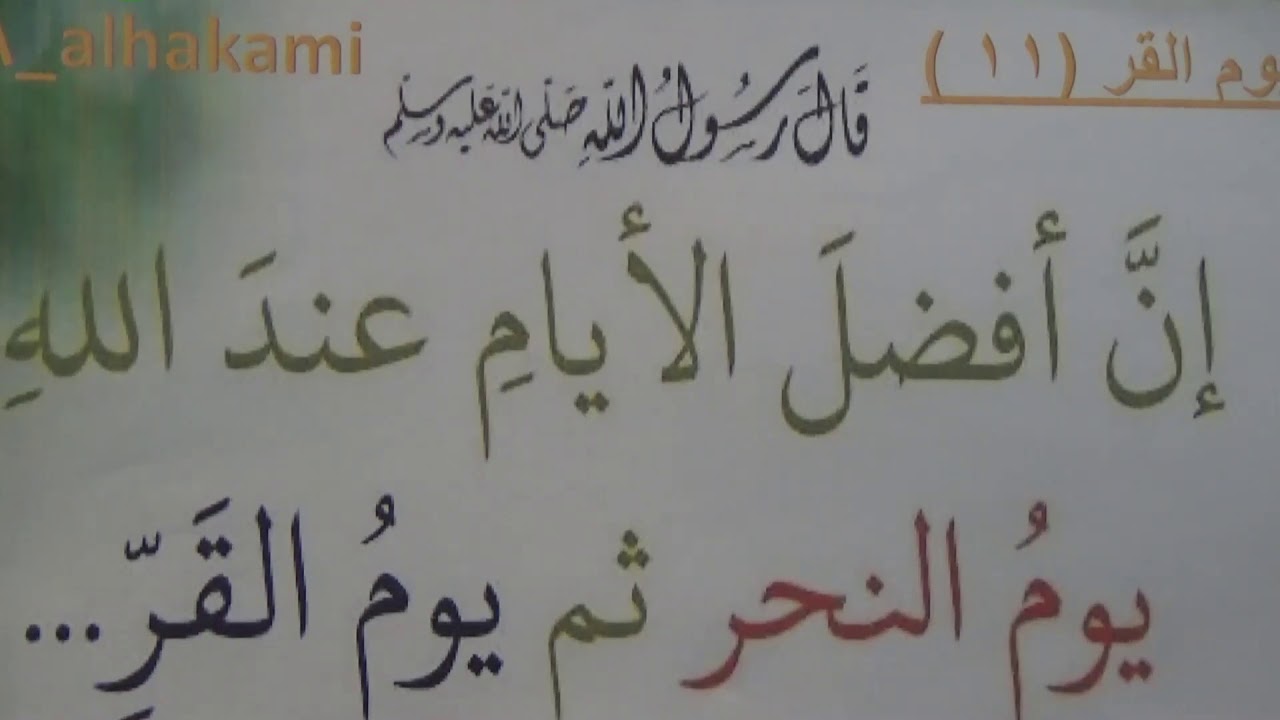 _alhakami
وم القر (١١)
قَالَ رَسُولُ اللهِ صَلَّى اللهُ عَلَيْهِ وَسَلَّم
إنَّ أفضلَ الأيامِ عندَ اللهِ
يومُ النحر ثم يومُ القَرِّ...